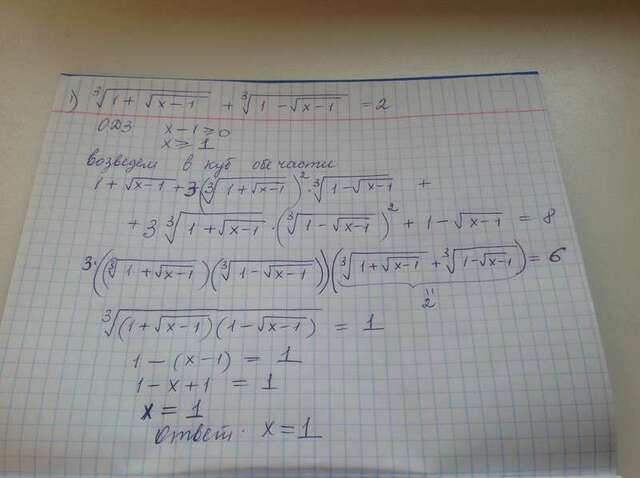 1) ∛(1 + √(x-1)) + ∛(1 - √(x-1)) = 2
ОДЗ x - 1 ≥ 0
x ≥ 1
возведем в куб обе части
1 + √(x-1) + 3(∛(1 + √(x-1)))² · ∛(1 - √(x-1)) +
+ 3 ∛(1 + √(x-1)) · (∛(1 - √(x-1)))² + 1 - √(x-1) = 8
3·((∛(1 + √(x-1)))(∛(1 - √(x-1))))(∛(1 + √(x-1)) + ∛(1 - √(x-1))) = 6
2
∛((1 + √(x-1))(1 - √(x-1))) = 1
1 - (x-1) = 1
1 - x + 1 = 1
x = 1
Ответ. x = 1